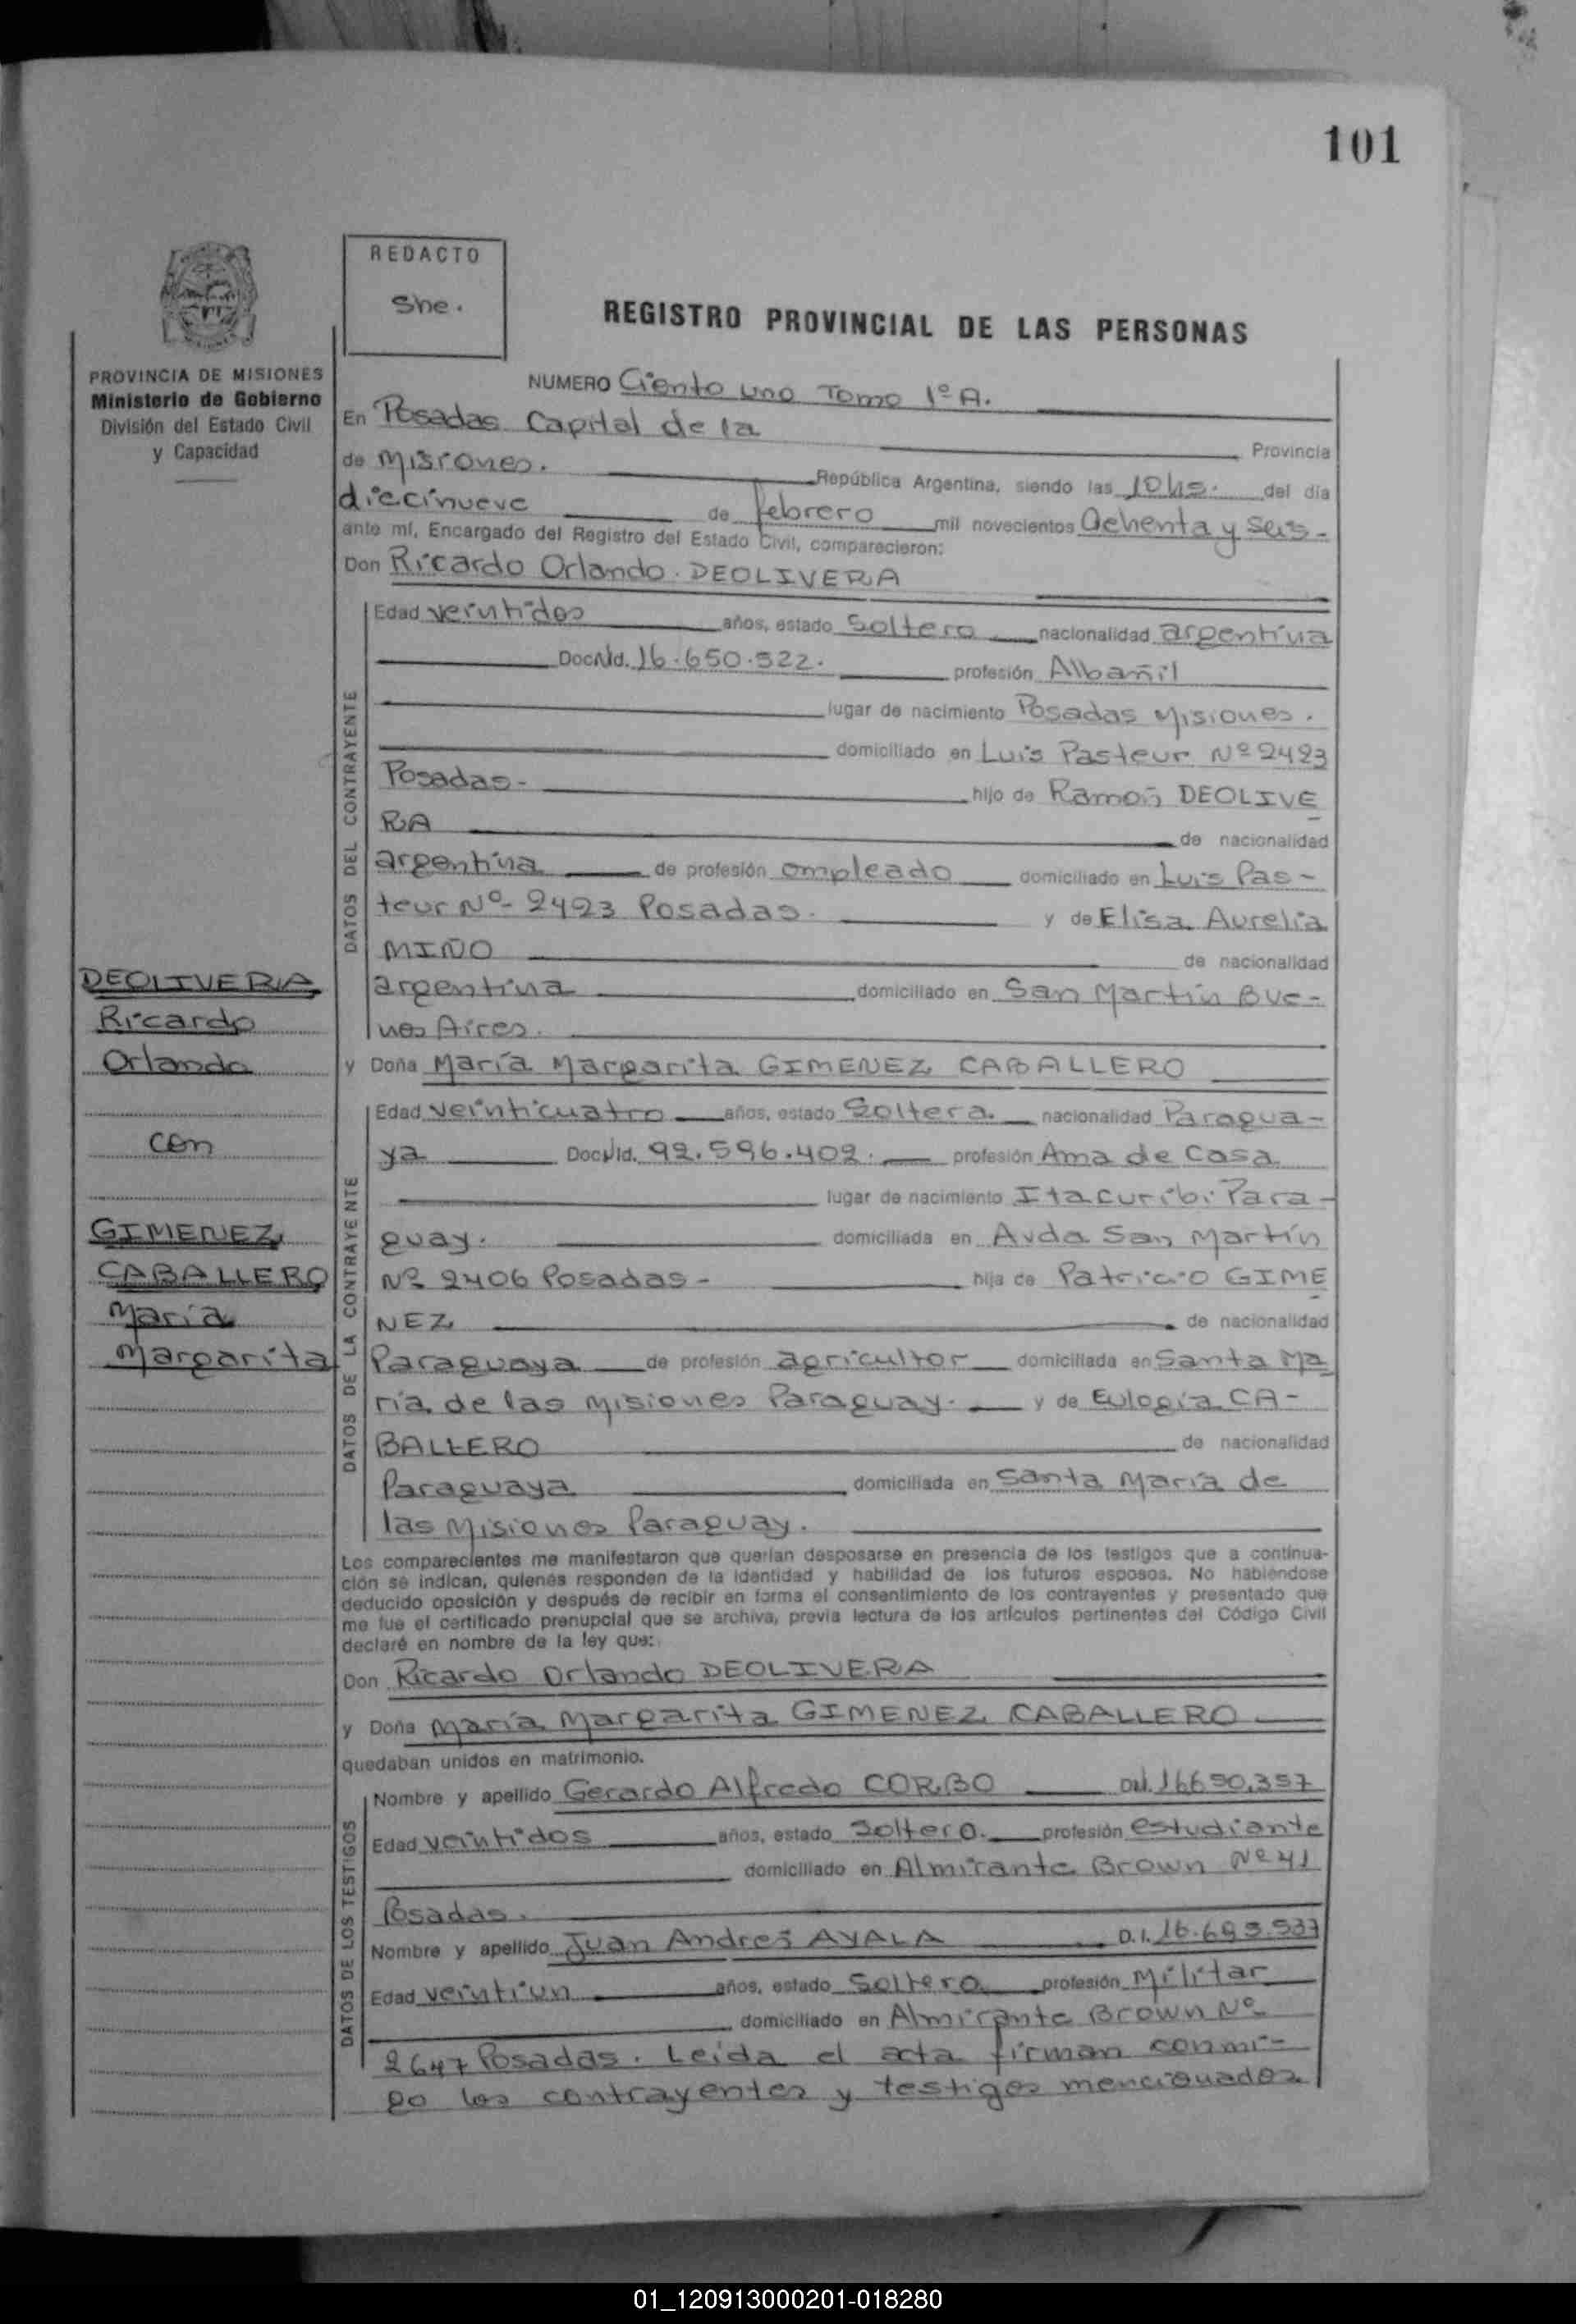 101
REDACTO
She.
REGISTRO PROVINCIAL DE LAS PERSONAS
PROVINCIA DE MISIONES
Ministerio de Gobierno
División del Estado Civil
y Capacidad
NUMERO Ciento uno Tomo 1º A.
En Posadas Capital de la Provincia
de Misiones. República Argentina, siendo las 10 hs. del día
diecinueve de febrero mil novecientos Ochenta y seis-
ante mí, Encargado del Registro del Estado Civil, comparecieron:
Don Ricardo Orlando DEOLIVERA
DATOS DEL CONTRAYENTE
Edad veintidos años, estado Soltero nacionalidad argentina
Doc. Nd. 16.650.522. profesión Albañil
lugar de nacimiento Posadas Misiones.
domiciliado en Luis Pasteur Nº 2423
Posadas- hijo de Ramón DEOLIVE
RA de nacionalidad
argentina de profesión empleado domiciliado en Luis Pas-
teur Nº 2423 Posadas. y de Elisa Aurelia
MIÑO de nacionalidad
argentina domiciliado en San Martín Bue-
nos Aires.
DEOLIVERA
Ricardo
Orlando
con
GIMENEZ
CABALLERO
María
Margarita
y Doña María Margarita GIMENEZ CABALLERO
DATOS DE LA CONTRAYENTE
Edad veinticuatro años, estado Soltera. nacionalidad Paragua-
ya Doc. Id. 92.596.402. profesión Ama de Casa
lugar de nacimiento Itacuribi Para-
guay. domiciliada en Avda San Martín
Nº 2406 Posadas- hija de Patricio GIME
NEZ de nacionalidad
Paraguaya de profesión agricultor domiciliada en Santa Ma
ría de las Misiones Paraguay. y de Eulogia CA-
BALLERO de nacionalidad
Paraguaya domiciliada en Santa María de
las Misiones Paraguay.
Los comparecientes me manifestaron que querían desposarse en presencia de los testigos que a continua-
ción se indican, quienes responden de la identidad y habilidad de los futuros esposos. No habiéndose
deducido oposición y después de recibir en forma el consentimiento de los contrayentes y presentado que
me fue el certificado prenupcial que se archiva, previa lectura de los artículos pertinentes del Código Civil
declaré en nombre de la ley que:
Don Ricardo Orlando DEOLIVERA
y Doña María Margarita GIMENEZ CABALLERO
quedaban unidos en matrimonio.
DATOS DE LOS TESTIGOS
Nombre y apellido Gerardo Alfredo CORBO DNI. 16650.357
Edad veintidos años, estado Soltero. profesión estudiante
domiciliado en Almirante Brown Nº 41
Posadas.
Nombre y apellido Juan Andres AYALA D.I. 16.693.537
Edad veintiun años, estado Soltero profesión Militar
domiciliado en Almirante Brown Nº
2647 Posadas. Leida el acta firman conmi-
go los contrayentes y testigos mencionados
01_120913000201-018280